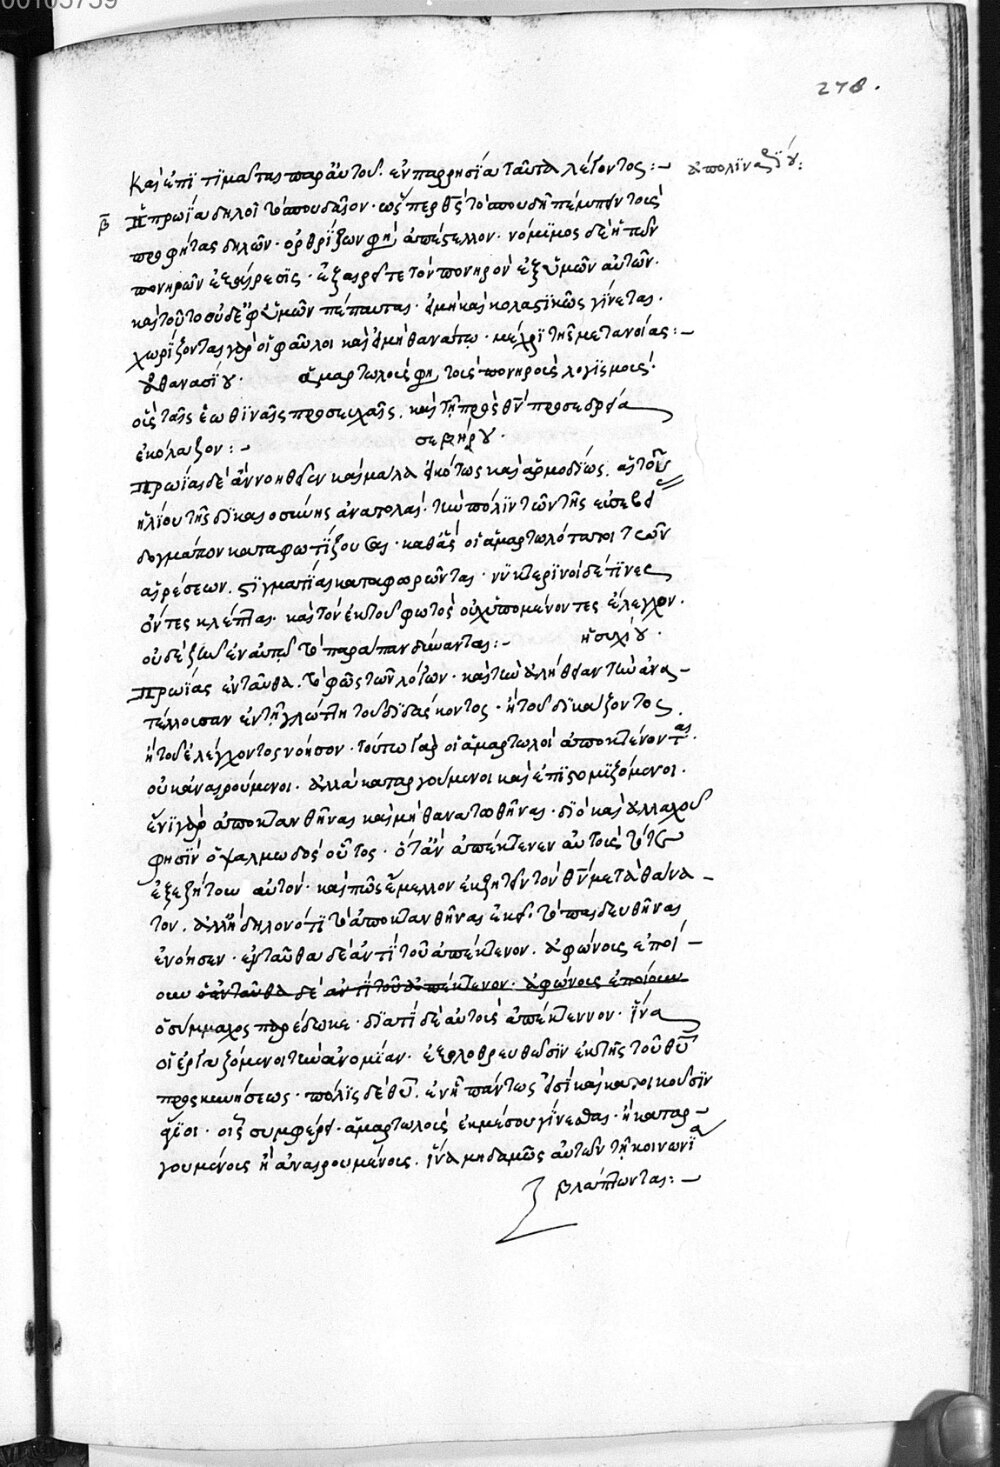 00105759
278.
καὶ ἐπιτιμᾶται παρ' αὐτοῦ. ἐν παρρησία ταῦτα λέγοντος:– ἀπολιναρίου:
β Ἡ πρωΐα δηλοῖ τὸ σπουδαῖον· ὥσπερ θς τὸ σπουδῆ πέμπειν τοὺς
προφήτας δηλῶν· ὀρθρίζων φησὶ ἀπέστελλον· νόμιμος δὲ ἡ τῶν
πονηρῶν ἐξαίρεσις· ἐξαρεῖτε τὸν πονηρὸν ἐξ ὑμῶν αὐτῶν.
καὶ τοῦτο οὐδὲ ἐφ' ὑμῶν πέπαυται. εἰ μὴ καὶ κολαστικῶς γίνεται.
χωρίζονται γὰρ οἱ φαῦλοι καὶ εἰ μὴ θανάτω· μέχρι τῆς μετανοίας:–
ἀθανασίου· ἁμαρτωλοὺς φη τοὺς πονηροὺς λογισμούς.
οὓς ταῖς ἑωθιναῖς προσευχαῖς. καὶ τῆ πρὸς θν προσεδρεία
ἐκόλαζον:– σεβήρου·
Πρωίας δὲ ἂν νοηθεῖεν καὶ μάλα εἰκότως καὶ ἁρμοδίως. αἱ τοῦ
ἡλίου τῆς δικαιοσύνης ἀνατολαί. τὴν πόλιν τῶν τῆς εὐσεβεί
δογμάτων καταφωτίζουσαι· καθ' ἃς οἱ ἁμαρτωλότατοι τῶν
αἱρέσεων. στιγματίαι καταφωρῶνται· νυκτερινοὶ δέ τινες
ὄντες κλέπται. καὶ τὸν ἐκ τοῦ φωτὸς οὐχ ὑπομένοντες ἔλεγχον.
οὐδὲ ζῆν ἐν αὐτῆ τὸ παράπαν δύνανται:– ἡσυχίου·
Πρωίας ἐνταῦθα. τὸ φῶς τῶν λόγων· καὶ τὴν ἀλήθειαν τὴν ἀνα–
τέλλουσαν ἐν τῆ γλώττη τοῦ διδάσκοντος· ἢ τοῦ δικάζοντος.
ἢ τοῦ ἐλέγχοντος νόησον· τούτω γὰρ οἱ ἁμαρτωλοὶ ἀποκτένονται.
οὐκ ἀναιρούμενοι· ἀλλὰ καταργούμενοι καὶ ἐπιστομιζόμενοι.
ἔνι γὰρ ἀποκτανθῆναι καὶ μὴ θανατωθῆναι· διὸ καὶ ἀλλαχοῦ
φησὶν ὁ ψαλμωδὸς οὗτος· ὅταν ἀπέκτενεν αὐτοὺς τότε
ἐξεζήτουν αὐτόν· καὶ πῶς ἔμελλον ἐκζητεῖν τὸν θν μετὰ θάνα–
τον. ἀλλ' ἢ δηλονότι τὸ ἀποκτανθῆναι ἐκεῖ τὸ παιδευθῆναι
ἐνόησεν· ἐνταῦθα δὲ ἀντὶ τοῦ ἀπέκτενον. ἀφώνους ἐποί–
ουν ἐνταῦθα δὲ ἀντὶ τοῦ ἀπέκτενον· ἀφώνους ἐποίουν
ὁ σύμμαχος παρέδωκε· διατί δὲ αὐτοὺς ἀπέκτεννον· ἵνα
οἱ ἐργαζόμενοι τὴν ἀνομίαν. ἐξολοθρευθῶσιν ἐκ τῆς τοῦ θῦ
προσκυνήσεως· πόλις δὲ θῦ. ἐν ἧ πάντως εἰσὶ καὶ κατοικοῦσιν
ἅγιοι· οἷς συμφέρει. ἁμαρτωλοὺς ἐκ μέσου γίνεσθαι. ἢ καταρ–
γουμένους ἢ ἀναιρουμένους. ἵνα μηδαμῶς αὐτῶν τῆ κοινωνία
βλάπτωνται:–